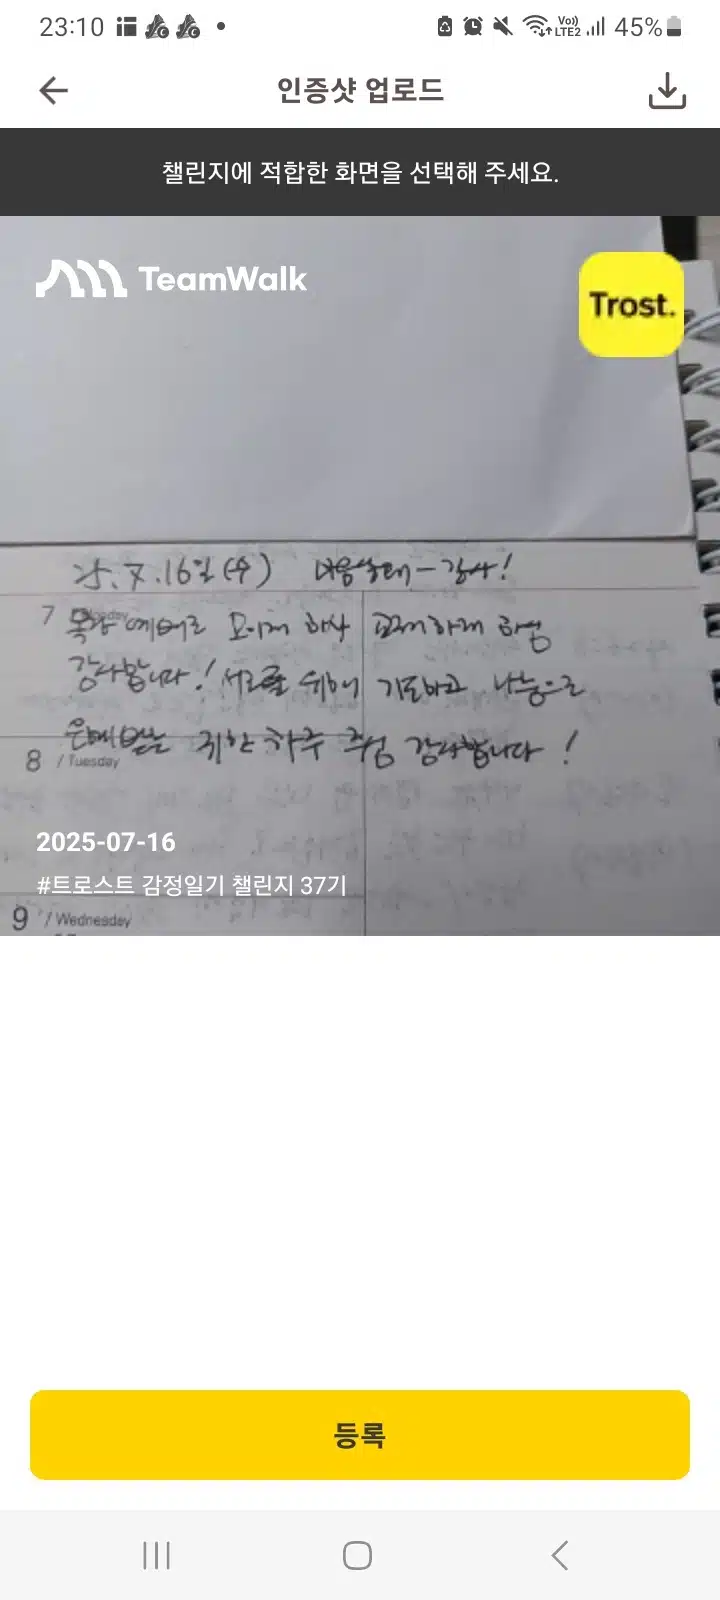 23:10
Vo)) LTE2 45%
인증샷 업로드
챌린지에 적합한 화면을 선택해 주세요.
TeamWalk
Trost.
25.7.16일(수) 마음상태 - 감사!
7 예배로 모이게 하사 교제하게 하심
감사합니다! 서로를 위해 기도하고 나눔으로
은혜 귀한 하루 주심 감사합니다!
8 / Tuesday
2025-07-16
#트로스트 감정일기 챌린지 37기
9 / Wednesday
등록